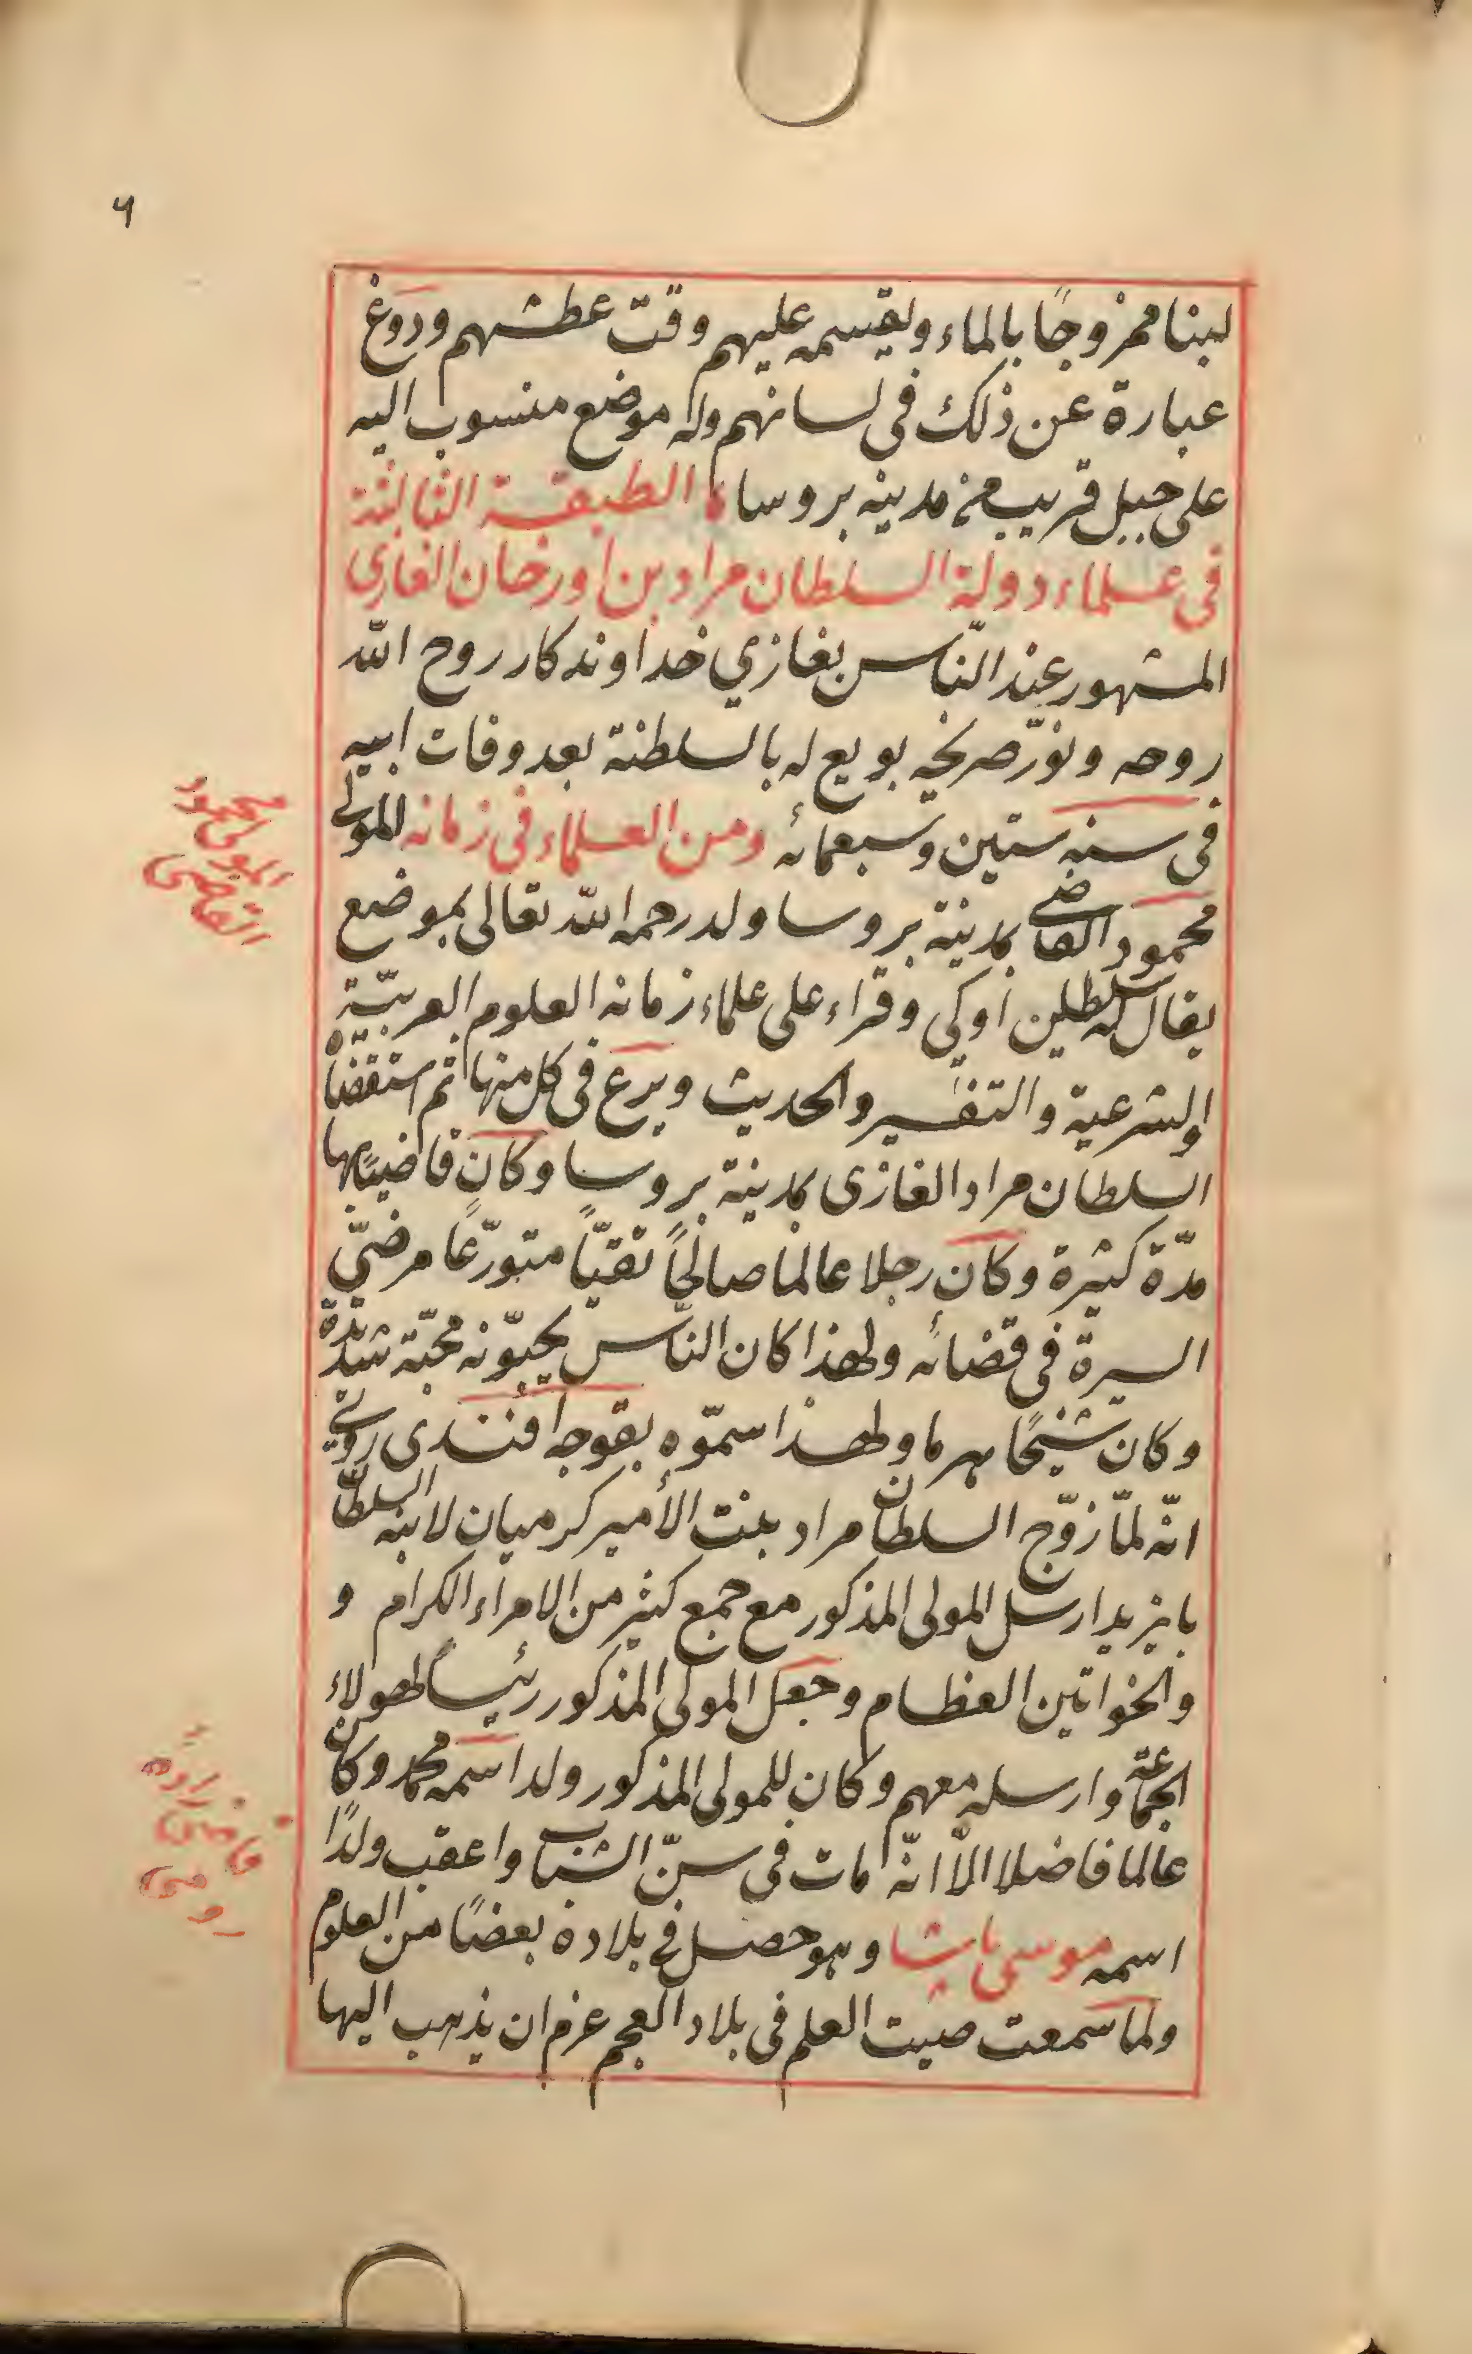 ٦
لبنا ممزوجًا بالماء ويقسمه عليهم وقت عطشهم ودوغ
عبارة عن ذلك فى لسانهم وله موضع منسوب اليه
على جبل قريب من مدينه بروسا الطبقة الثالثة
فى علماء دولة السلطان مراد بن اورخان الغازي
المشهور عند النّاس بغازي خداوندكار روح اللّه
روحه ونوّر ضريحه بويع له بالسلطنة بعد وفات ابيه
فى سنه ستين وسبعمائه ومن العلماء فى زمانه المولى
محمود القاضى بمدينة بروسا ولد رحمه اللّه تعالى بموضع
يقال له سلطان اوكى وقراء على علماء زمانه العلوم العربيّة
والشرعية والتفسير والحديث وبرع فى كل منها ثم استقضاه
السلطان مراد الغازى بمدينة بروسا وكان قاضيًا بها
مدّة كثيرة وكان رجلا عالما صالحًا تقيّا متورّعًا مرضىّ
السيرة فى قضائه ولهذا كان النّاس يحبّونه محبّة شديدة
وكان شيخًا هرما ولهذا سمّوه بقوجه أفندى روى
انّه لمّا زوّج السلطان مراد بنت الأمير كرميان لابنه السلطان
بايزيد ارسل المولى المذكور مع جمع كثير من الامراء الكرام و
والخواتين العظام وجعل المولى المذكور رئيسا لهولاء
الجماعة وارسله معهم وكان للمولى المذكور ولد اسمه محمد وكان
عالما فاضلا الّا انّه مات فى سنّ الشباب واعقب ولدًا
اسمه موسى باشا وهو حصل فى بلاده بعضًا من العلوم
ولما سمعت صيت العلم فى بلاد العجم عزم ان يذهب اليها
المولى محمود
القاضى
قاضى زاده
رومى